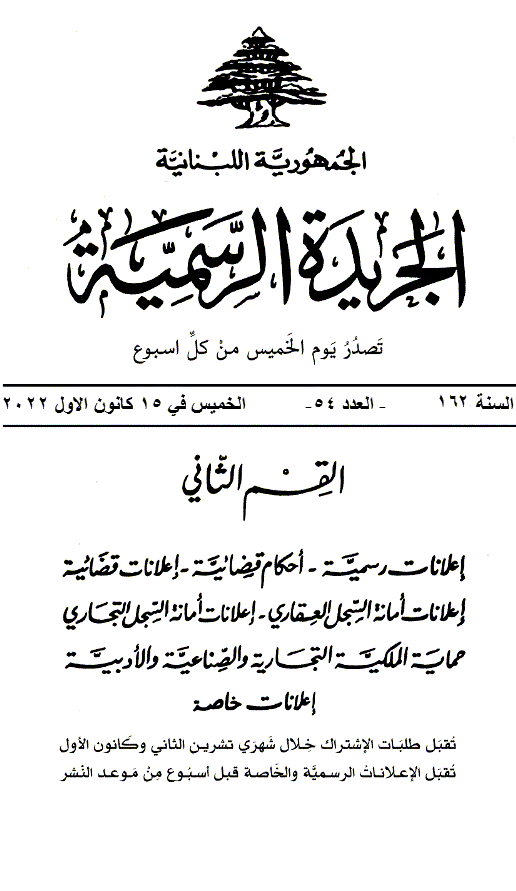 الجُمهُوريَّة اللبْنانيَّة
الجَريدَة الرسَّمِيَّة
تَصدُرُ يَوم الخَميس منْ كلِّ اسبوع
السنة ١٦٢ ـ العدد ٥٤ـ الخميس في ١٥ كانون الاول ٢٠٢٢
القِسْم الثّاني
إعلانات رسميَّة - أحكام قضائيَّة - إعلانات قضائية
إعلانات أمانة السِّجل العِقاري - إعلانات أمانة السِّجل التجاري
حماية الملكيَّة التجارية والصِّناعيَّة والأدبيَّة
إعلانات خاصة
تُقبَل طلبَات الإشتراك خِلال شَهرَي تشرين الثاني وكَانون الأول
تُقبَل الإعلاناتُ الرسميَّة والخَاصة قبل أسبُوع مِنْ مَوعد النَشر